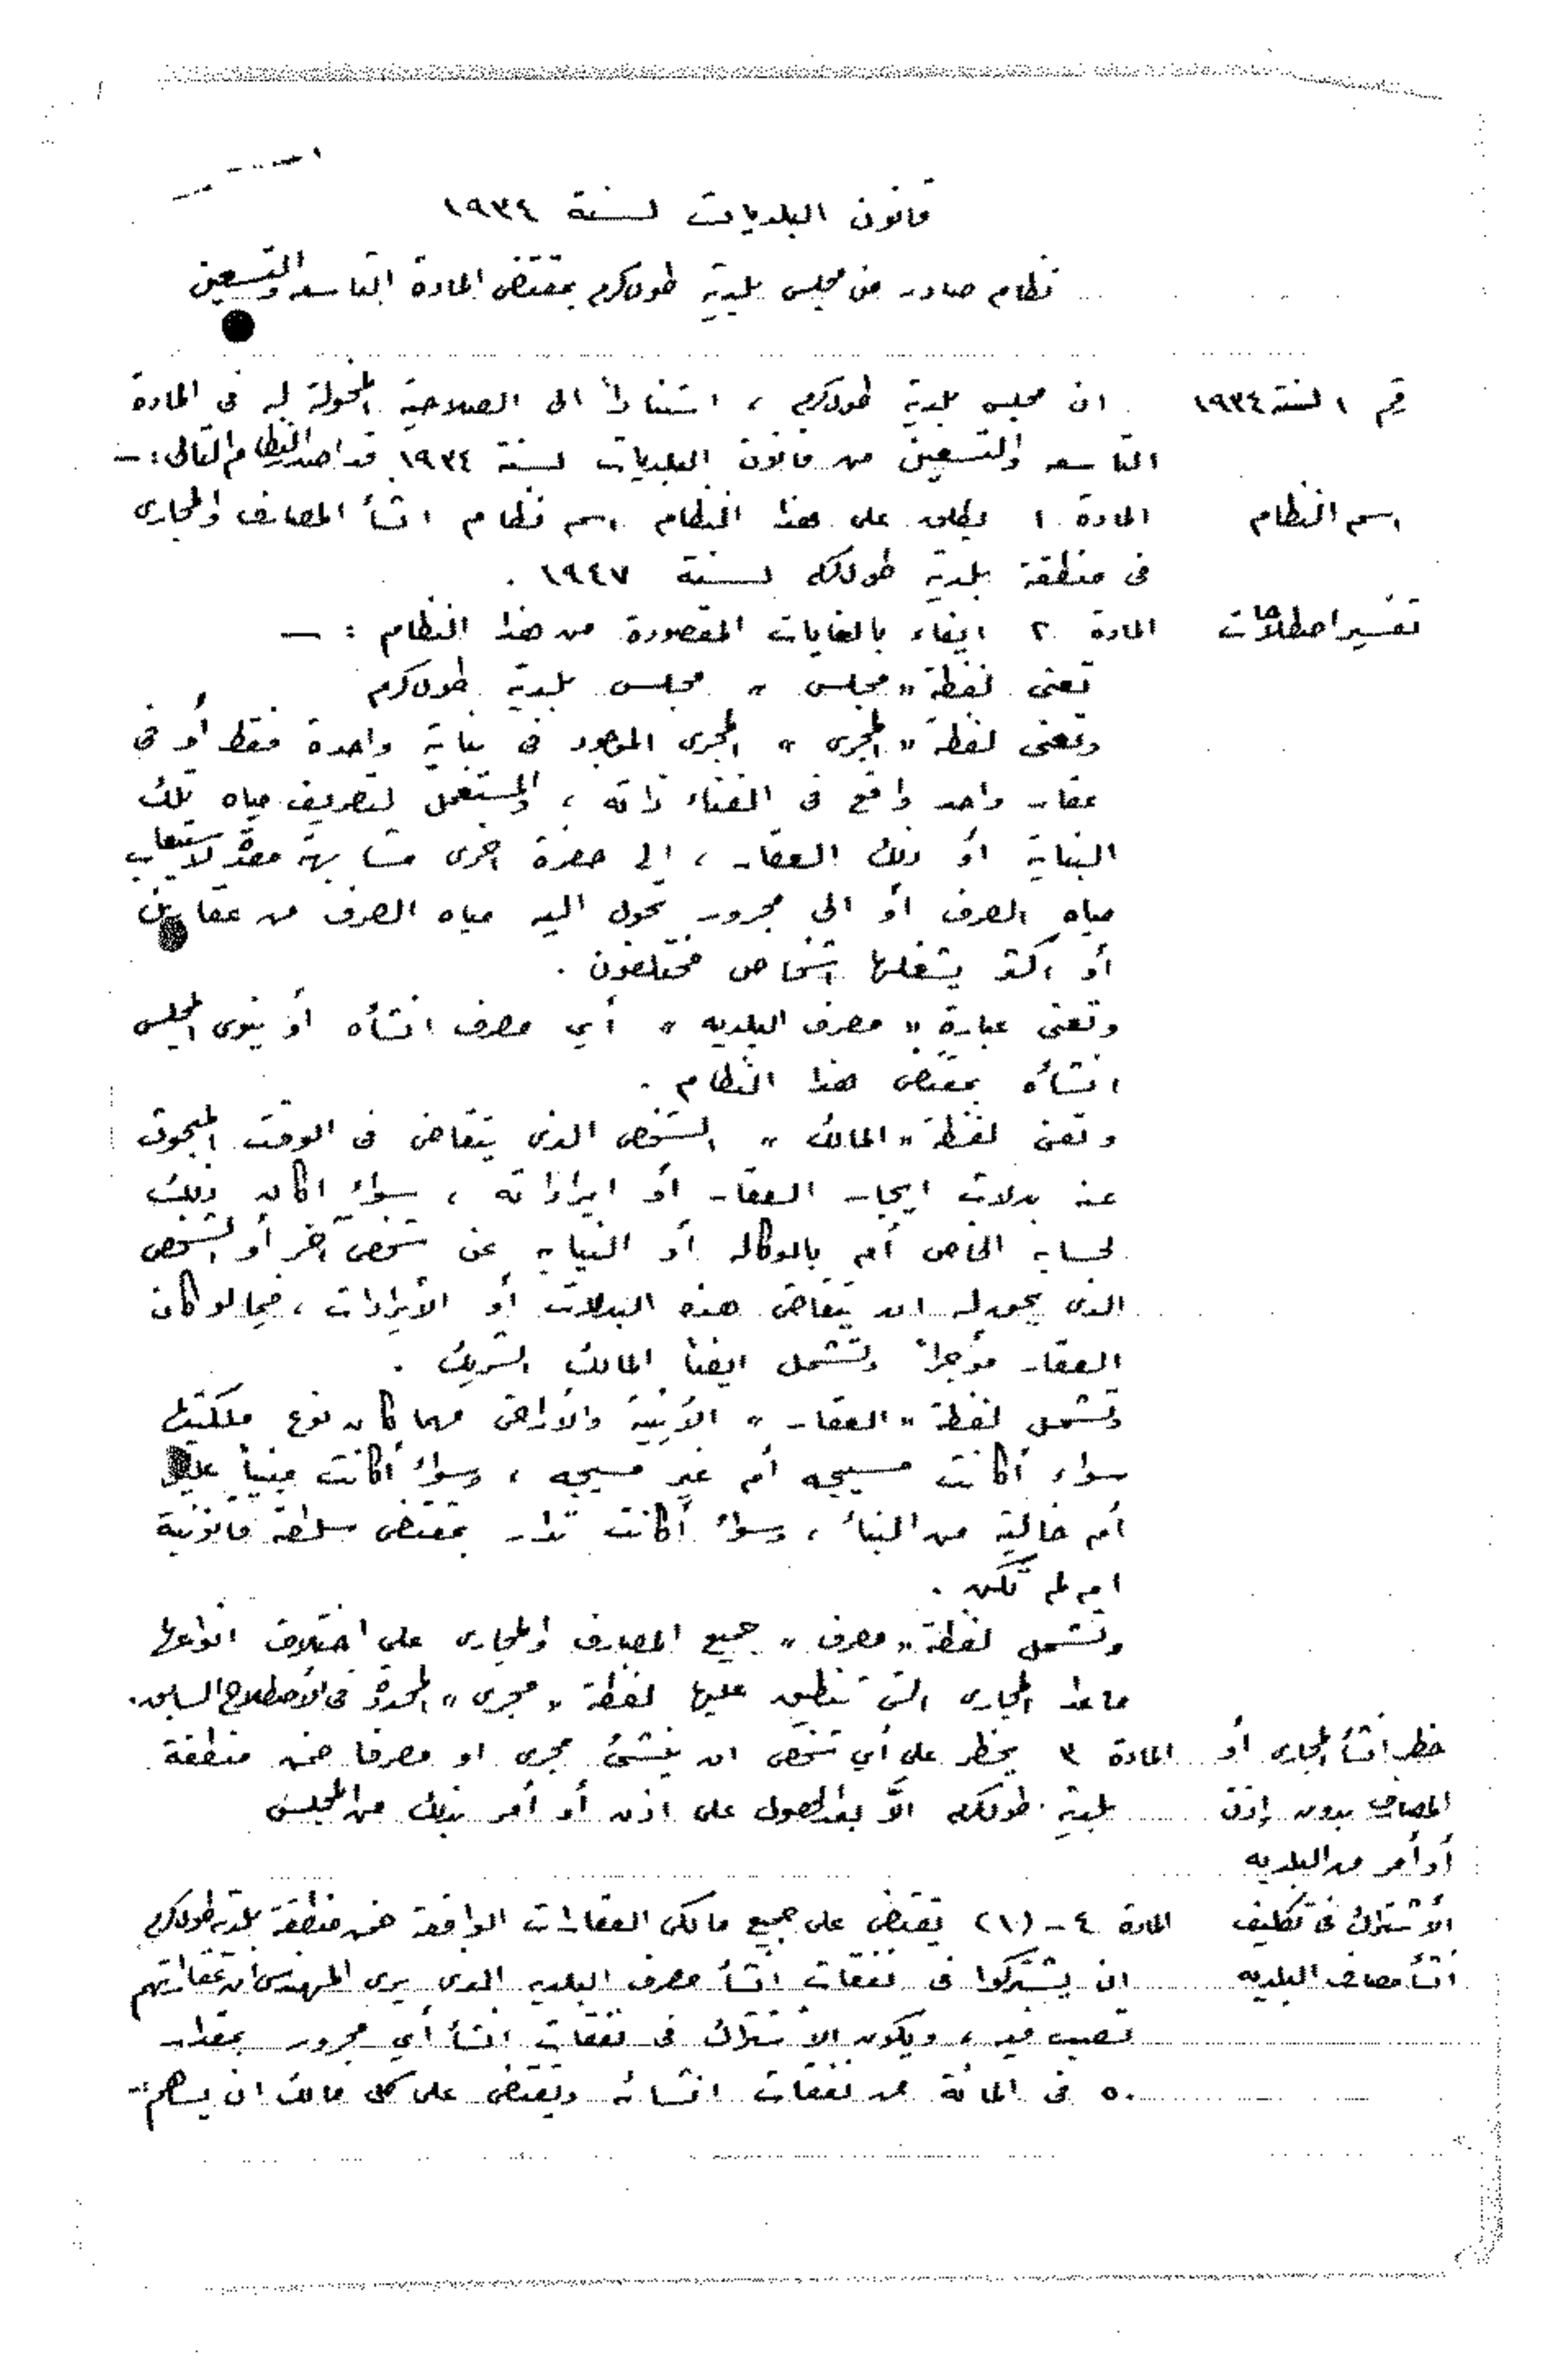 قانون البلديات لسنة ١٩٣٤
نظام صادر من مجلس بلدية طولكرم بمقتضى المادة التاسعه والتسعين
رقم ١ لسنة ١٩٣٤ ان مجلس بلدية طولكرم ، استناداً الى الصلاحية المخولة له فى المادة
التاسعه والتسعين من قانون البلديات لسنة ١٩٣٤ قد اصدر النظام التالى : ــ
اسم النظام المادة ١ يطلق على هذا النظام اسم نظام انشأ المصارف والمجارى
فى منطقة بلدية طولكرم لسنة ١٩٤٧ .
تفسير اصطلاحات المادة ٢ ايفاء بالغايات المقصودة من هذا النظام : ــ
تعنى لفظة " مجلس " مجلس بلدية طولكرم
وتعنى لفظة " المجرى " المجرى الموجود فى بناية واحدة فقط أو فى
عقار واحد واقع فى الفناء ذاته ، والمستعمل لتصريف مياه تلك
البناية أو ذلك العقار ، الى حفرة اخرى مشابهة معدة لاستيعاب
مياه الصرف أو الى مجرور تحول اليه مياه الصرف من عقارين
أو اكثر يشغلها اشخاص مختلفون .
وتعنى عبارة " مصرف البلديه " أي مصرف انشأه أو ينوى المجلس
انشأه بمقتضى هذا النظام .
وتعنى لفظة " المالك " الشخص الذى يتقاضى فى الوقت المبحوث
عنه بدلات ايجار العقار أو ايراداته ، سواء اكان ذلك
لحسابه الخاص أم بالوكاله أو النيابه عن شخص آخر أو الشخص
الذى يحق له ان يتقاضى هذه البدلات أو الأيرادات ، فيما لو كان
العقار مؤجراً وتشمل ايضاً المالك الشريك .
وتشمل لفظة " العقار " الأبنية والأراضى مهما كان نوع ملكتيها
سواء أكانت مسيجه أم غير مسيجه ، وسواء أكانت مبنياً عليها
أم خالية من البناء ، وسواء أكانت تدار بمقتضى سلطة قانونية
ام لم تكن .
وتشمل لفظة " مصرف " جميع المصارف والمجارى على اختلاف انواعها
ماعدا المجارى التى تنطبق عليها لفظة " مجرى " المحددة فى الأصطلاح السابق.
حظر انشأ المجارى أو المادة ٣ يحظر على أي شخص ان ينشئ مجرى او مصرفا ضمن منطقة
المصارف بدون إذن بلدية طولكرم الاّ بعد الحصول على اذن أو أمر بذلك من المجلس
أو أمر من البلديه
الأشتراك فى تكليف المادة ٤ ــ (١) يقتضى على جميع مالكى العقارات الواقعة ضمن منطقة بلدية طولكرم
انشأ مصارف البلديه ان يشتركوا فى نفقات انشأ مصرف البلديه الذى يرى المهندس ان عقاراتهم
تصب فيه ، ويكون الأشتراك فى نفقات انشأ أي مجرور بمقدار
٥٠ فى المائة من نفقات انشائه ويقتضى على كل مالك ان يساهم